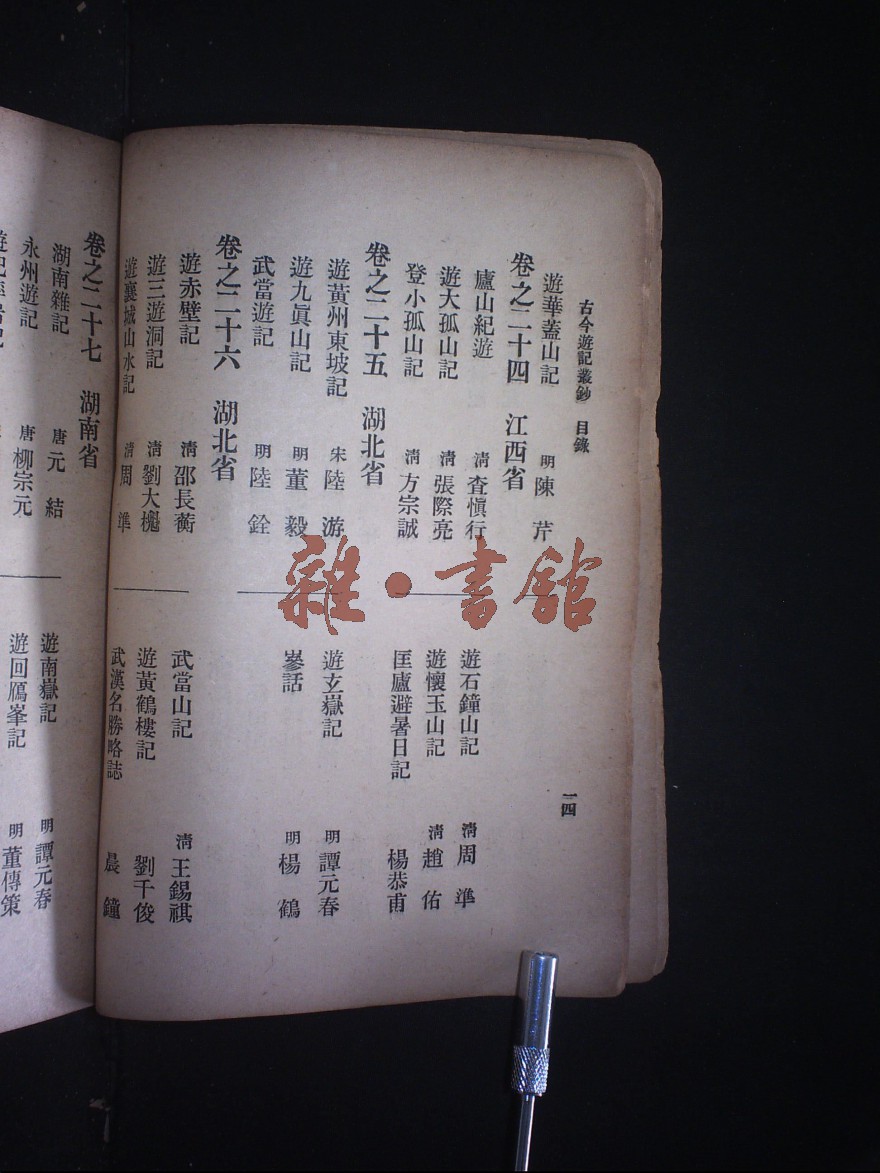 古今遊記叢鈔 目錄
一四
遊華蓋山記 明 陳芹
卷之二十四 江西省
廬山紀遊 清 查愼行
遊石鐘山記 清 周準
遊大孤山記 清 張際亮
遊懷玉山記 清 趙佑
登小孤山記 清 方宗誠
匡廬避暑日記 楊恭甫
卷之二十五 湖北省
遊黃州東坡記 宋 陸游
遊玄嶽記 明 譚元春
遊九眞山記 明 董毅
嵾話 明 楊鶴
武當遊記 明 陸銓
卷之二十六 湖北省
遊赤壁記 清 邵長蘅
武當山記 清 王錫祺
遊三遊洞記 清 劉大櫆
遊黃鶴樓記 劉千俊
遊襄城山水記 清 周準
武漢名勝略誌 晨鐘
卷之二十七 湖南省
湖南雜記 唐 元結
遊南嶽記 明 譚元春
永州遊記 唐 柳宗元
遊回鴈峯記 明 董傳策
雜·書館